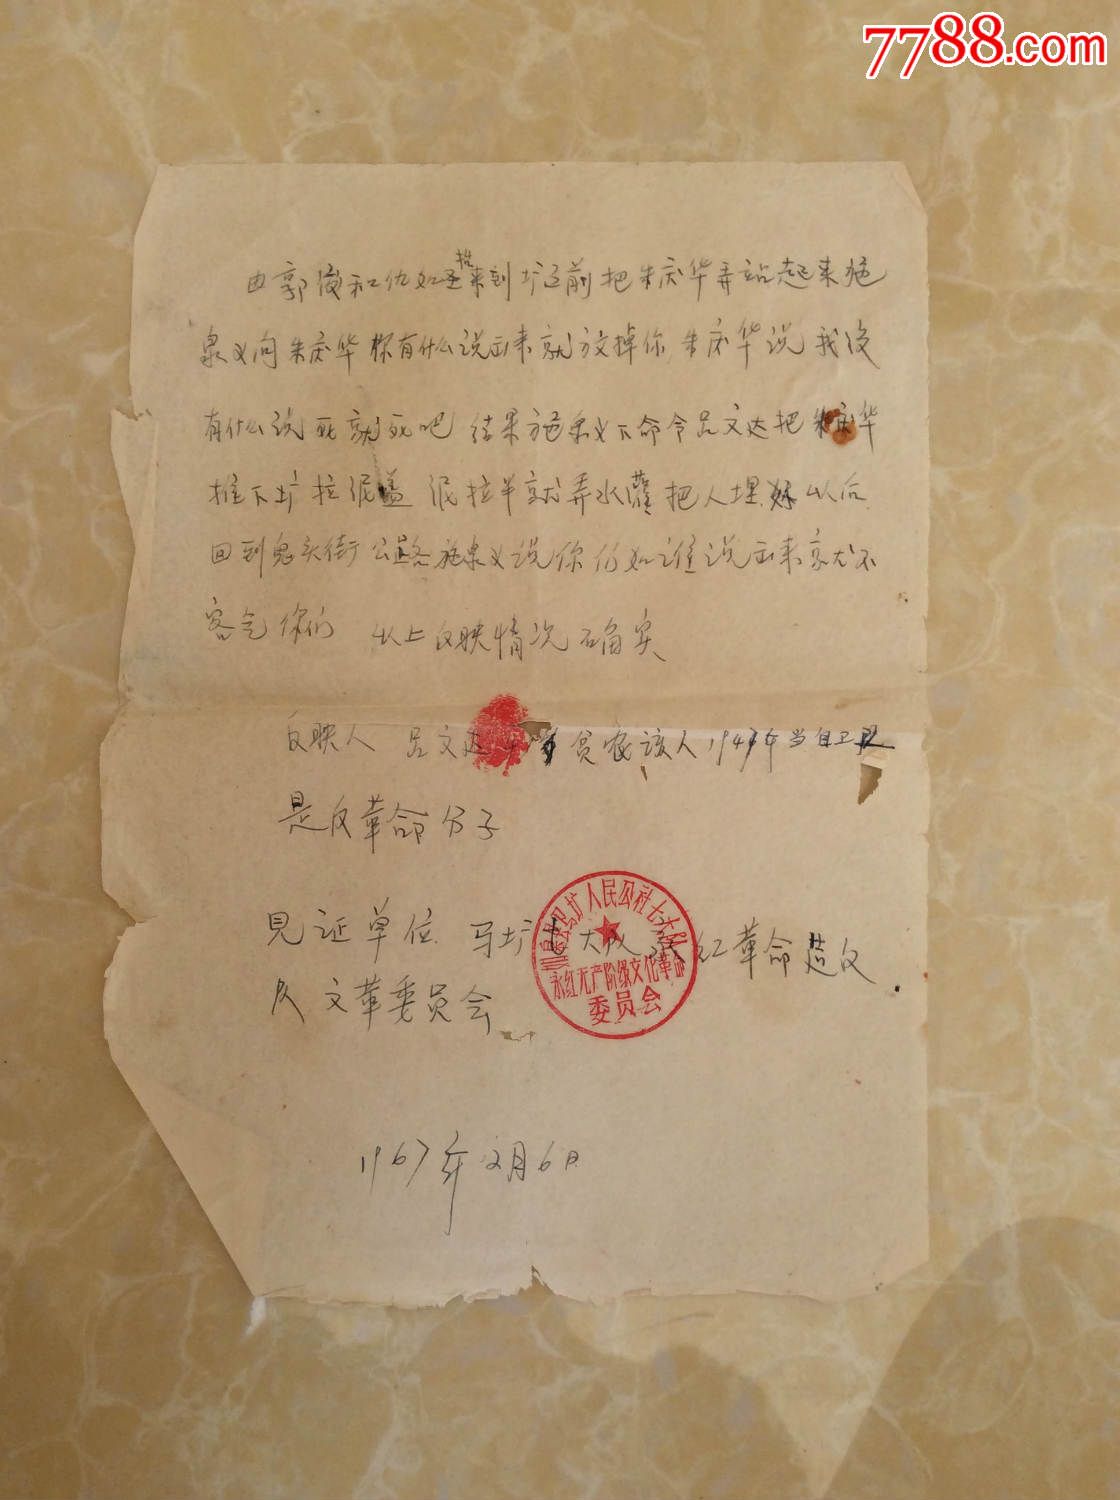 7788.com
由郭俊和仇如圣抬来到圹前把朱庆华弄站起来施
泉义问朱庆华你有什么说出来就放掉你 朱庆华说我没
有什么说死就死吧 结果施泉义下命令吕文达把朱庆华
推下圹拉泥盖 泥拉半就弄水灌 把人埋好以后
回到鬼头街公路施泉义说你们如谁说出来就不
客气你们 以上反映情况确实
反映人 吕文达 贫农该人194 年当自卫
是反革命分子
见证单位 马圹七大队永红革命造反
队文革委员会
如皋县马圹人民公社七大队
永红无产阶级文化革命
委员会
1967年2月6日